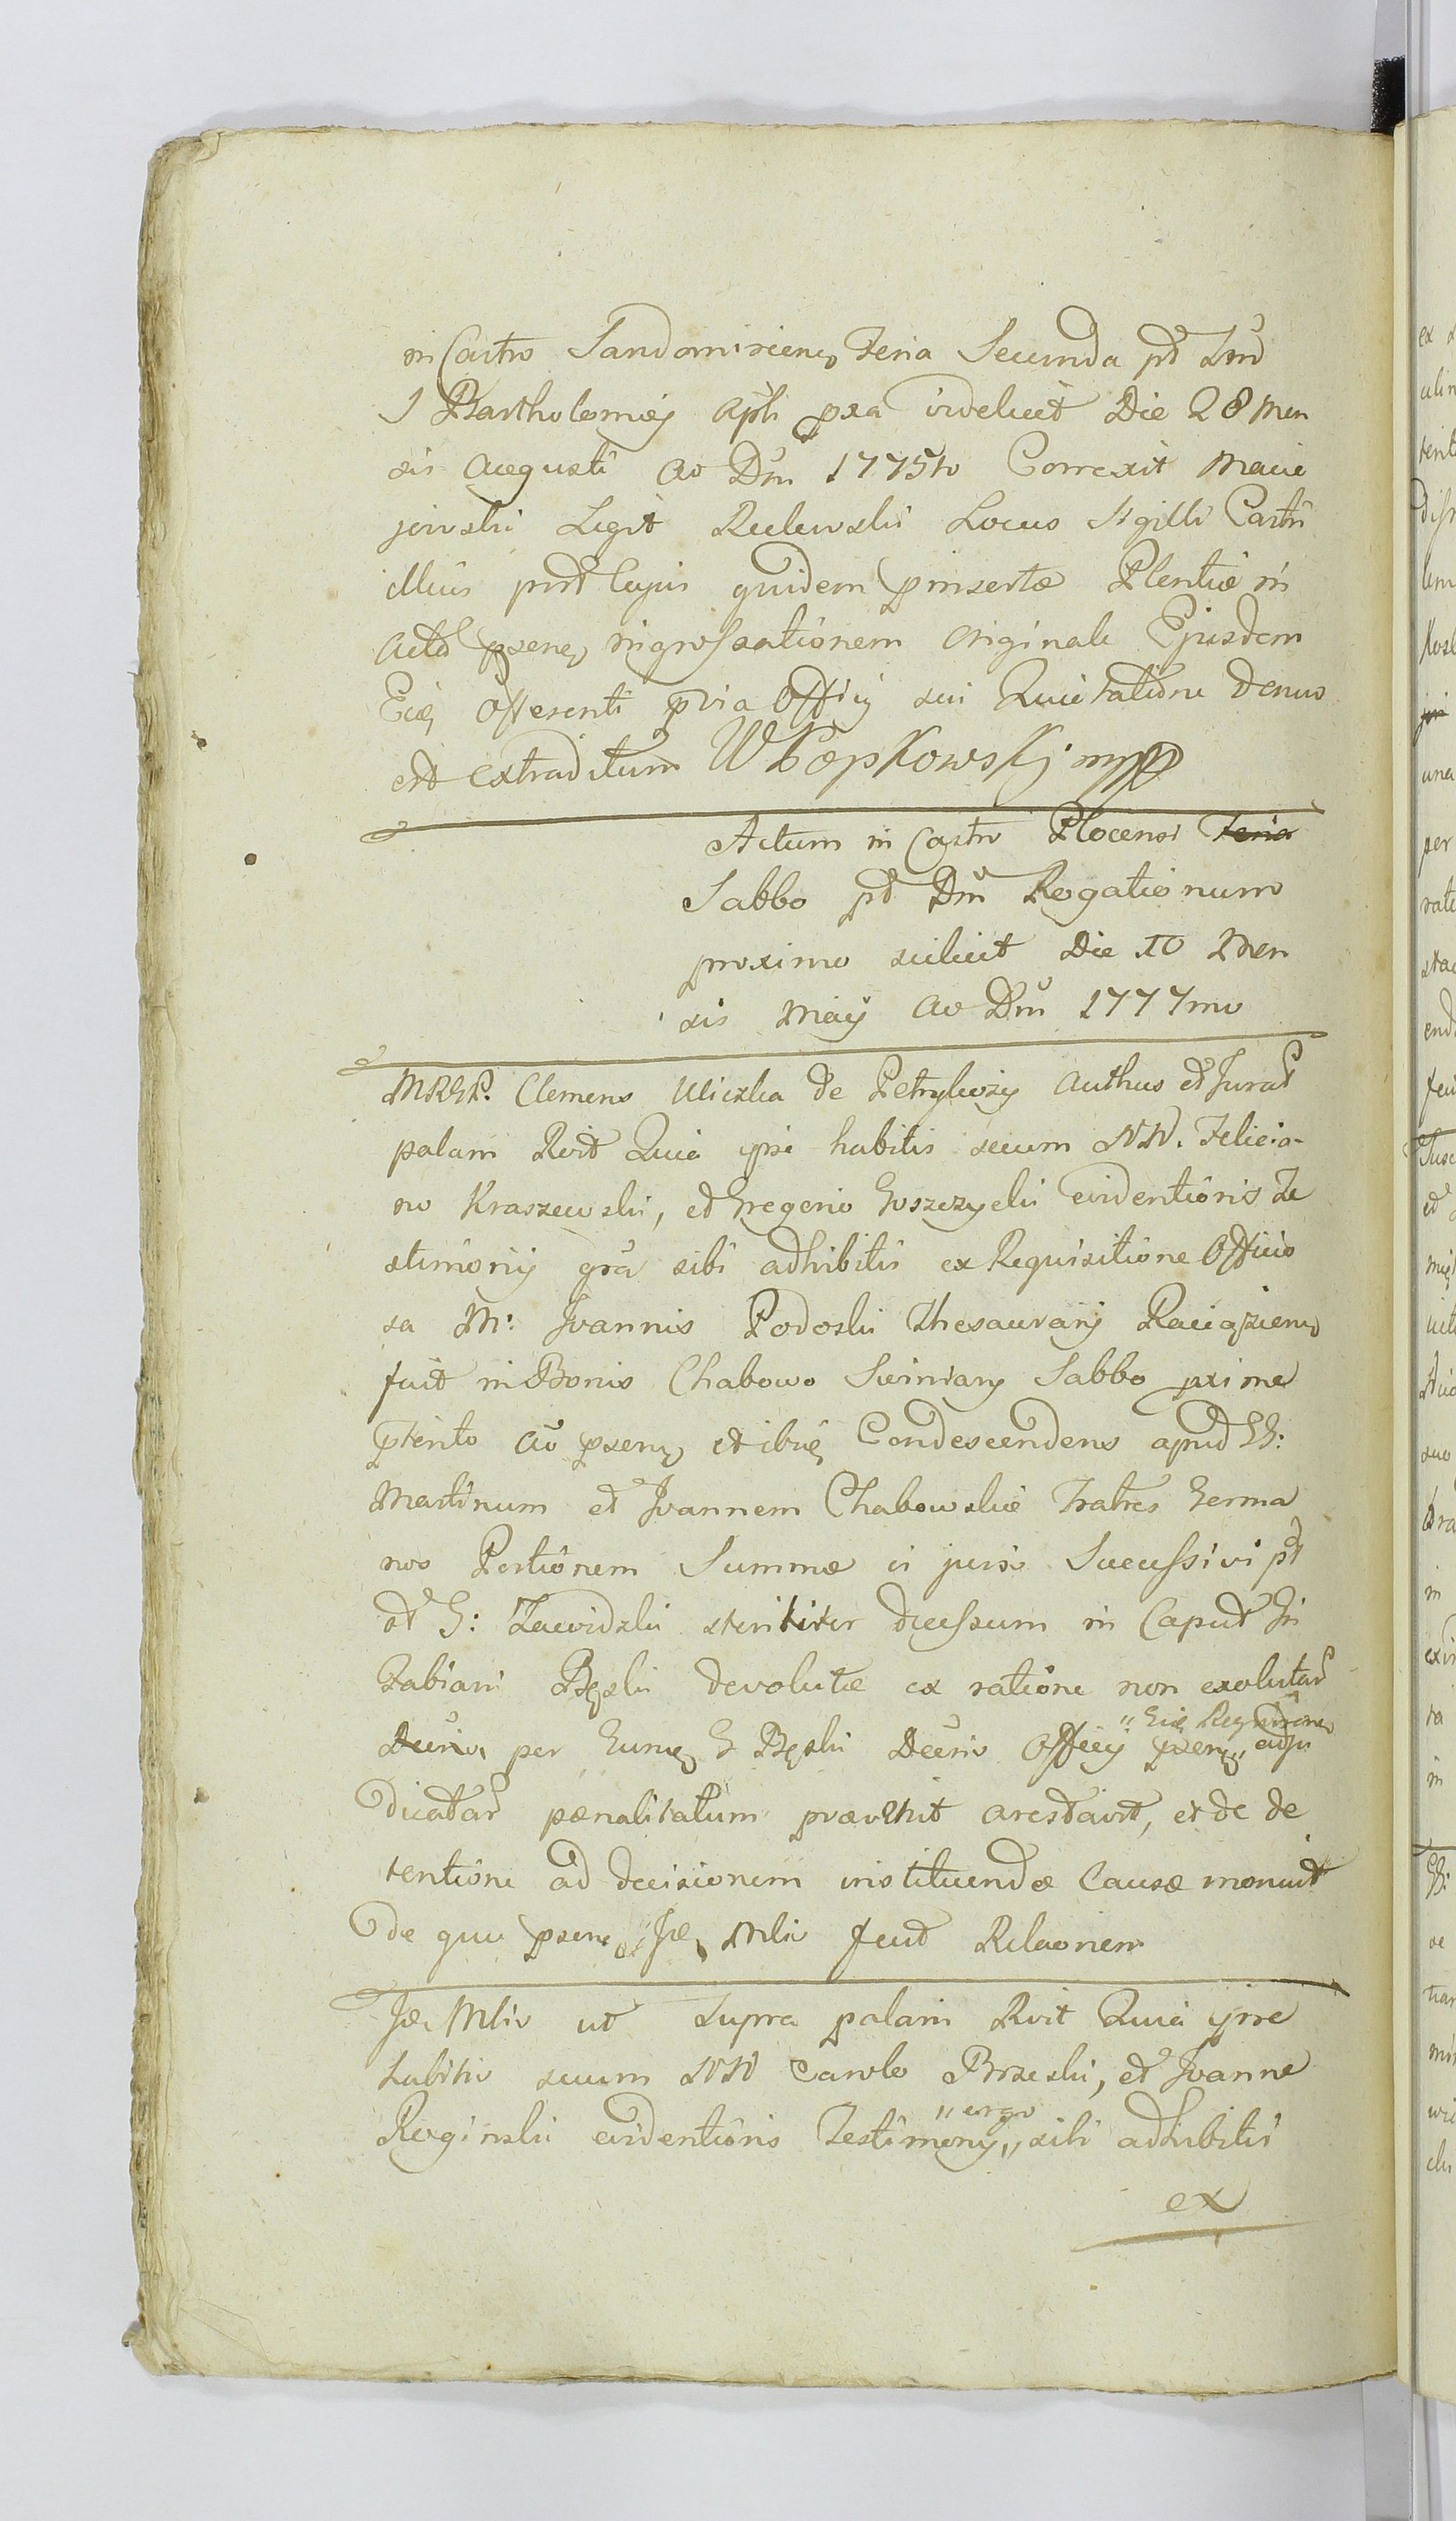 in Castro Sandomirien Feria Secunda pt Fm
S Bartholomæj Apli pxa videlicet Die 28 Men
sis Augusti Ao Dni 1775to Correxit Macie
jowski Legit Relewski Locus Sigilli Castri
illius post cujus quidem pinsertæ Plentiæ in
Acta psen ingrossationem Originale Ejusdem
Eid Offerenti pvia Officij sui Quietatione denuo
est extraditum WŁępkowskj mpp
Actum in Castro Plocensi Feria
Sabbo pt Dm Rogationum
proximo scilicet Die 10 Men
sis Maij Ao Dni 1777mo
MRGP. Clemens Uliczka de Petrykozy Authus et Jurat
palam Rvit Quia ipse habitis secum NN. Felicia-
no Kraszewski, et Gregorio Goszczycki evidentioris Te
stimonij gra sibi adhibitis ex Requisitione Officio
sa M: Joannis Podoski Thesaurarij Raciązien
fuit in Bonis Chabowo Swiniary Sabbo pxime
pterito Ao psen et ibid Condescendens apud GG:
Martinum et Joannem Chabowskie Fratres Germa
nos Portionem Summæ vi juris Sucessivi pt
ol G: Zawidzki steriliter decessum in Caput Gi
Fabiani Bęski devolutæ ex ratione non exolutar
Decris per Eund G Bęski Decris Officij psen, "Eid Regnnone" adju
dicatar pænalitatum prævenit arestavit, et de de
tentione ad decisionem instituendæ Causæ monuit
de quo psen Id Mlis fecit Relaonem
Id Mlis ut supra palam Rvit Quia ipse
habitis secum NN Carolo Brzeski, et Joanne
Roginski evidentioris Testimonij "ergo" sibi adhibitis
ex